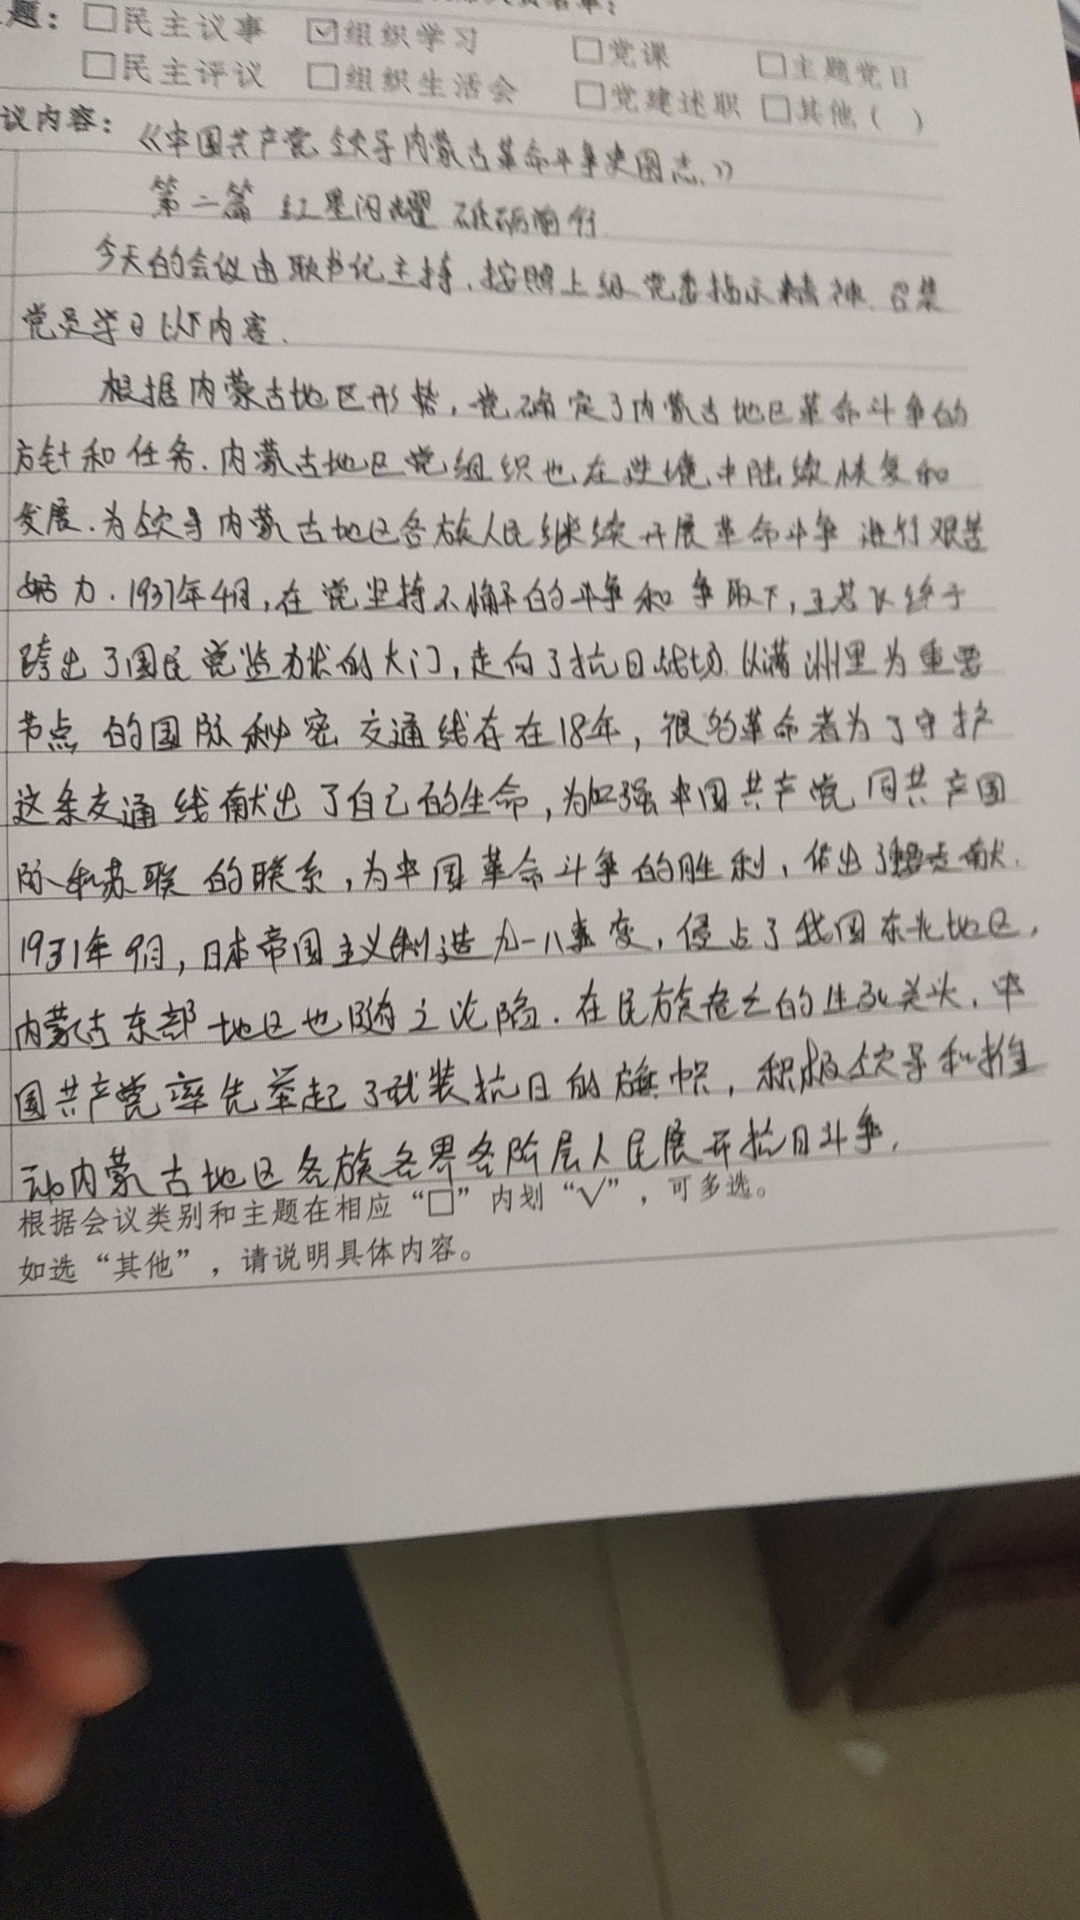 题：□民主议事 ☑组织学习 □党课 □主题党日
□民主评议 □组织生活会 □党建述职 □其他（ ）
议内容：《中国共产党领导内蒙古革命斗争史图志》
第二篇 红星闪耀 砥砺前行
今天的会议由耿书记主持，按照上级党委指示精神，召集
党员学习以下内容.
根据内蒙古地区形势，党确定了内蒙古地区革命斗争的
方针和任务.内蒙古地区党组织也在逆境中陆续恢复和
发展.为领导内蒙古地区各族人民继续开展革命斗争进行艰苦
努力.1937年4月,在党坚持不懈的斗争和争取下,王若飞终于
跨出了国民党监狱的大门,走向了抗日战场.以满洲里为重要
节点的国际秘密交通线存在18年，很多革命者为了守护
这条交通线献出了自己的生命,为加强中国共产党同共产国
际和苏联的联系,为中国革命斗争的胜利,作出了献.
1931年9月,日本帝国主义制造九一八事变,侵占了我国东北地区,
内蒙古东部地区也随之沦陷.在民族危亡的生死关头,中
国共产党率先举起了武装抗日的旗帜,积极领导和推
动内蒙古地区各族各界各阶层人民展开抗日斗争.
根据会议类别和主题在相应“□”内划“√”，可多选。
如选“其他”，请说明具体内容。